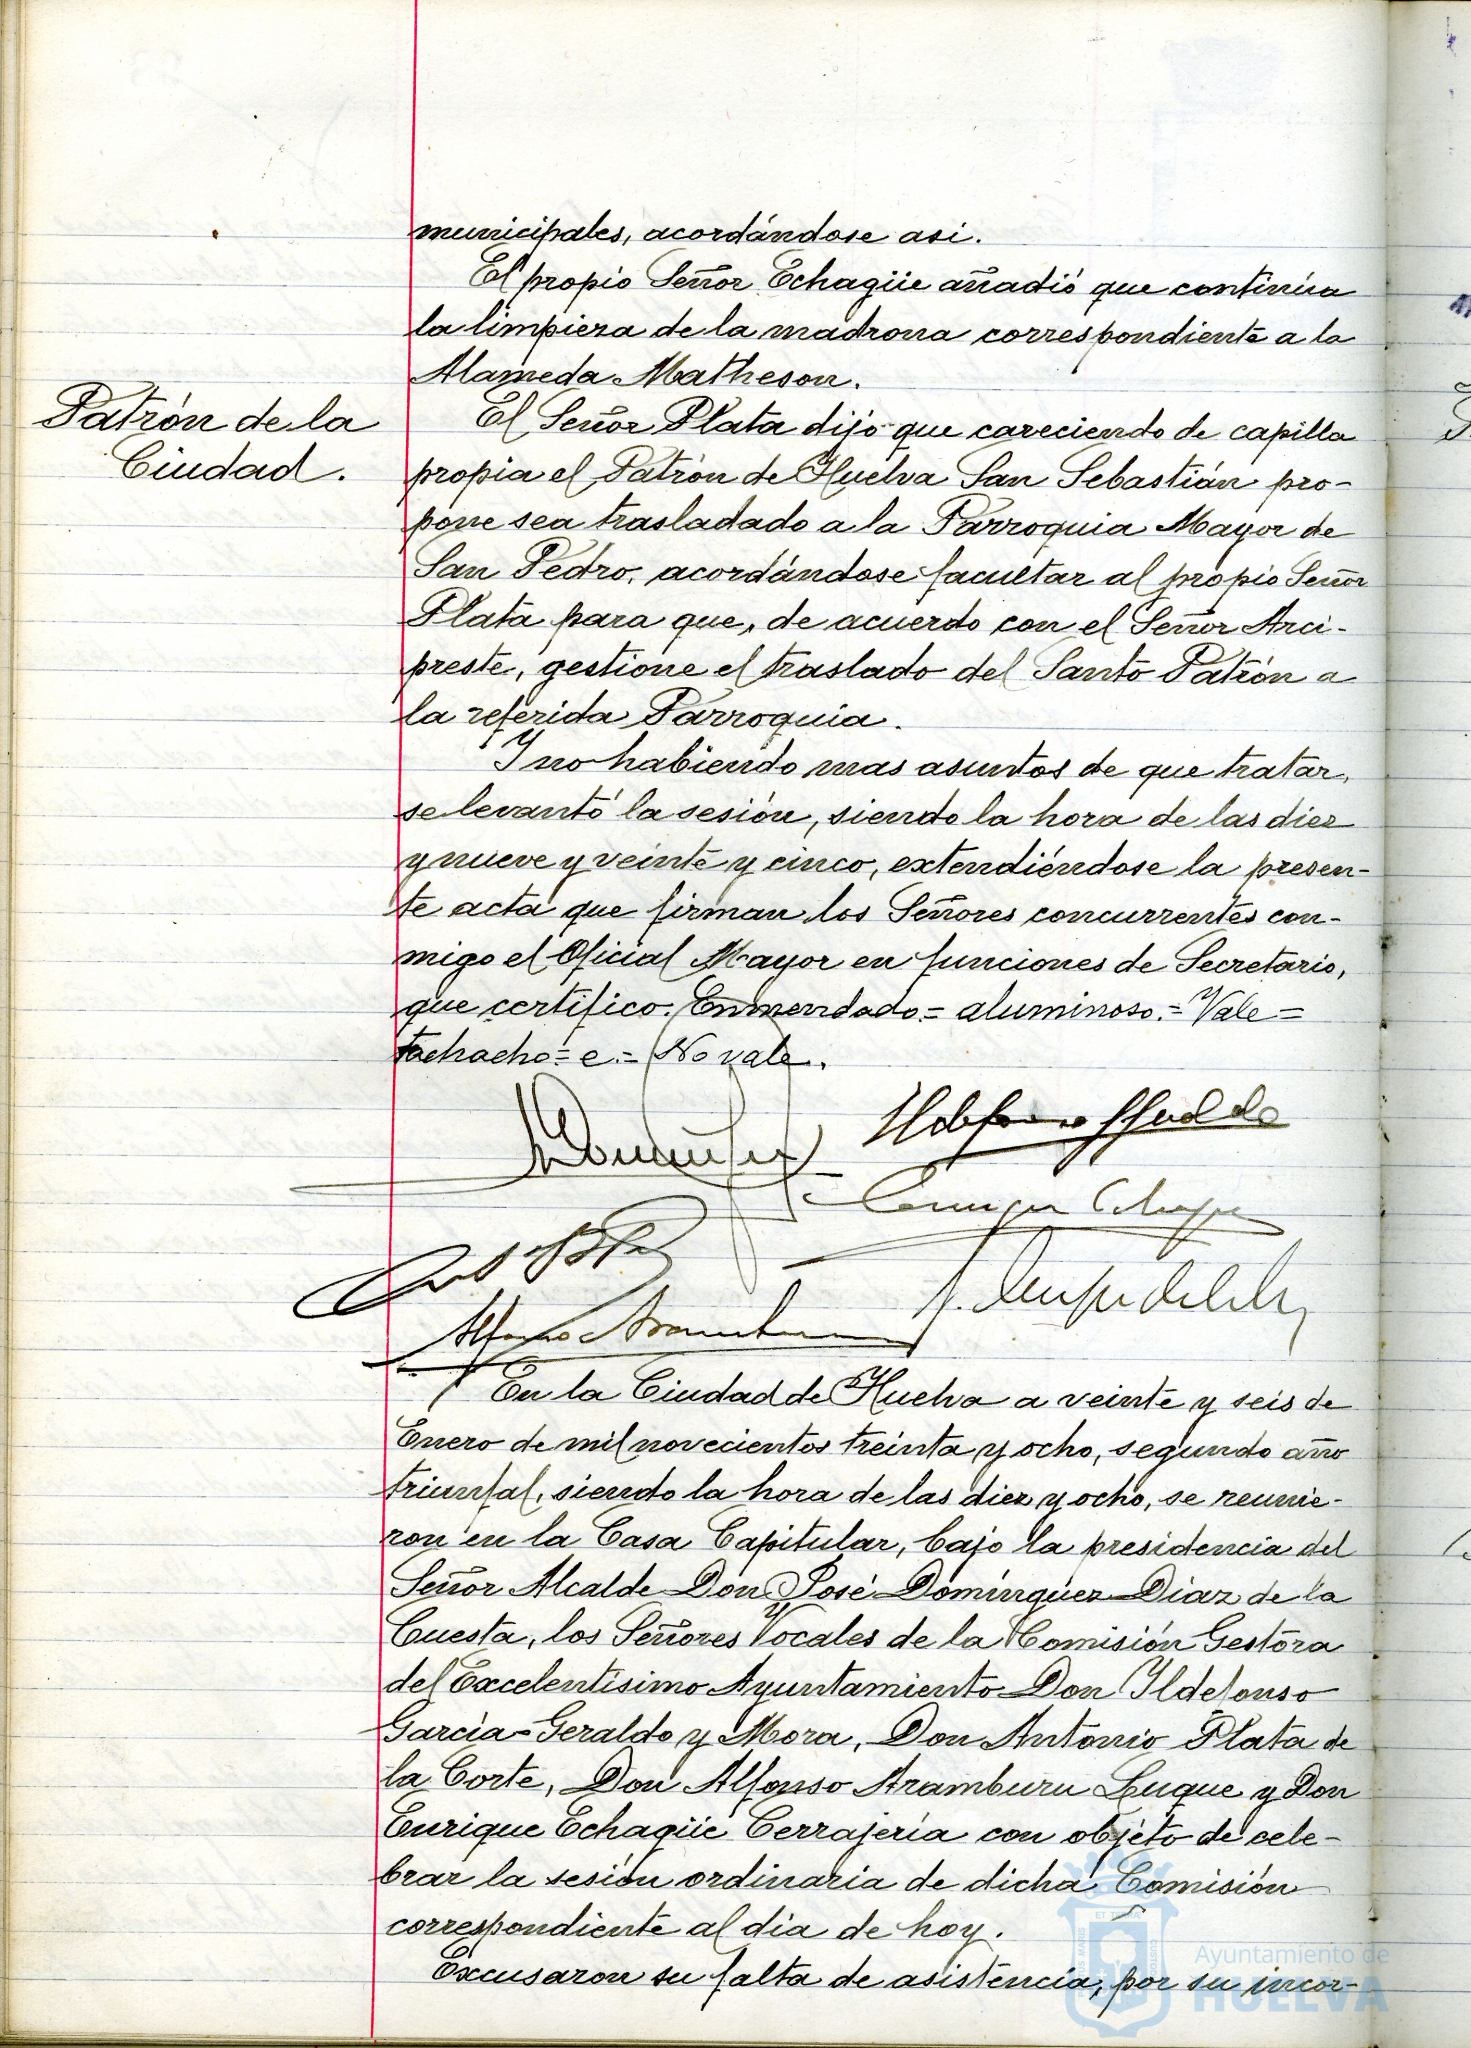 municipales, acordándose asi.
El propio Señor Echagüe añadió que continúa
la limpieza de la madrona correspondiente a la
Alameda Matheson.
Patrón de la
Ciudad.
El Señor Plata dijo que careciendo de capilla
propia el Patrón de Huelva San Sebastián pro-
pone sea trasladado a la Parroquia Mayor de
San Pedro, acordándose facultar al propio Señor
Plata para que, de acuerdo con el Señor Arci-
preste, gestione el traslado del Santo Patrón a
la referida Parroquia.
Y no habiendo mas asuntos de que tratar,
se levantó la sesión, siendo la hora de las diez
y nueve y veinte y cinco, extendiéndose la presen-
te acta que firman los Señores concurrentes con-
migo el Oficial Mayor en funciones de Secretario,
que certifico. Enmendado.= aluminoso.= Vale=
tachacho= e.= No vale.
Alfonso Aramburu
En la Ciudad de Huelva a veinte y seis de
Enero de mil novecientos treinta y ocho, segundo año
triunfal, siendo la hora de las diez y ocho, se reunie-
ron en la Casa Capitular, bajo la presidencia del
Señor Alcalde Don José Domínguez Diaz de la
Cuesta, los Señores Vocales de la Comisión Gestora
del Excelentísimo Ayuntamiento Don Ildefonso
García-Geraldo y Mora, Don Antonio Plata de
la Corte, Don Alfonso Aramburu Luque y Don
Enrique Echagüe Cerrajería con objeto de cele-
brar la sesión ordinaria de dicha Comisión
correspondiente al dia de hoy.
Excusaron su falta de asistencia, por su incor-
Ayuntamiento de
HUELVA